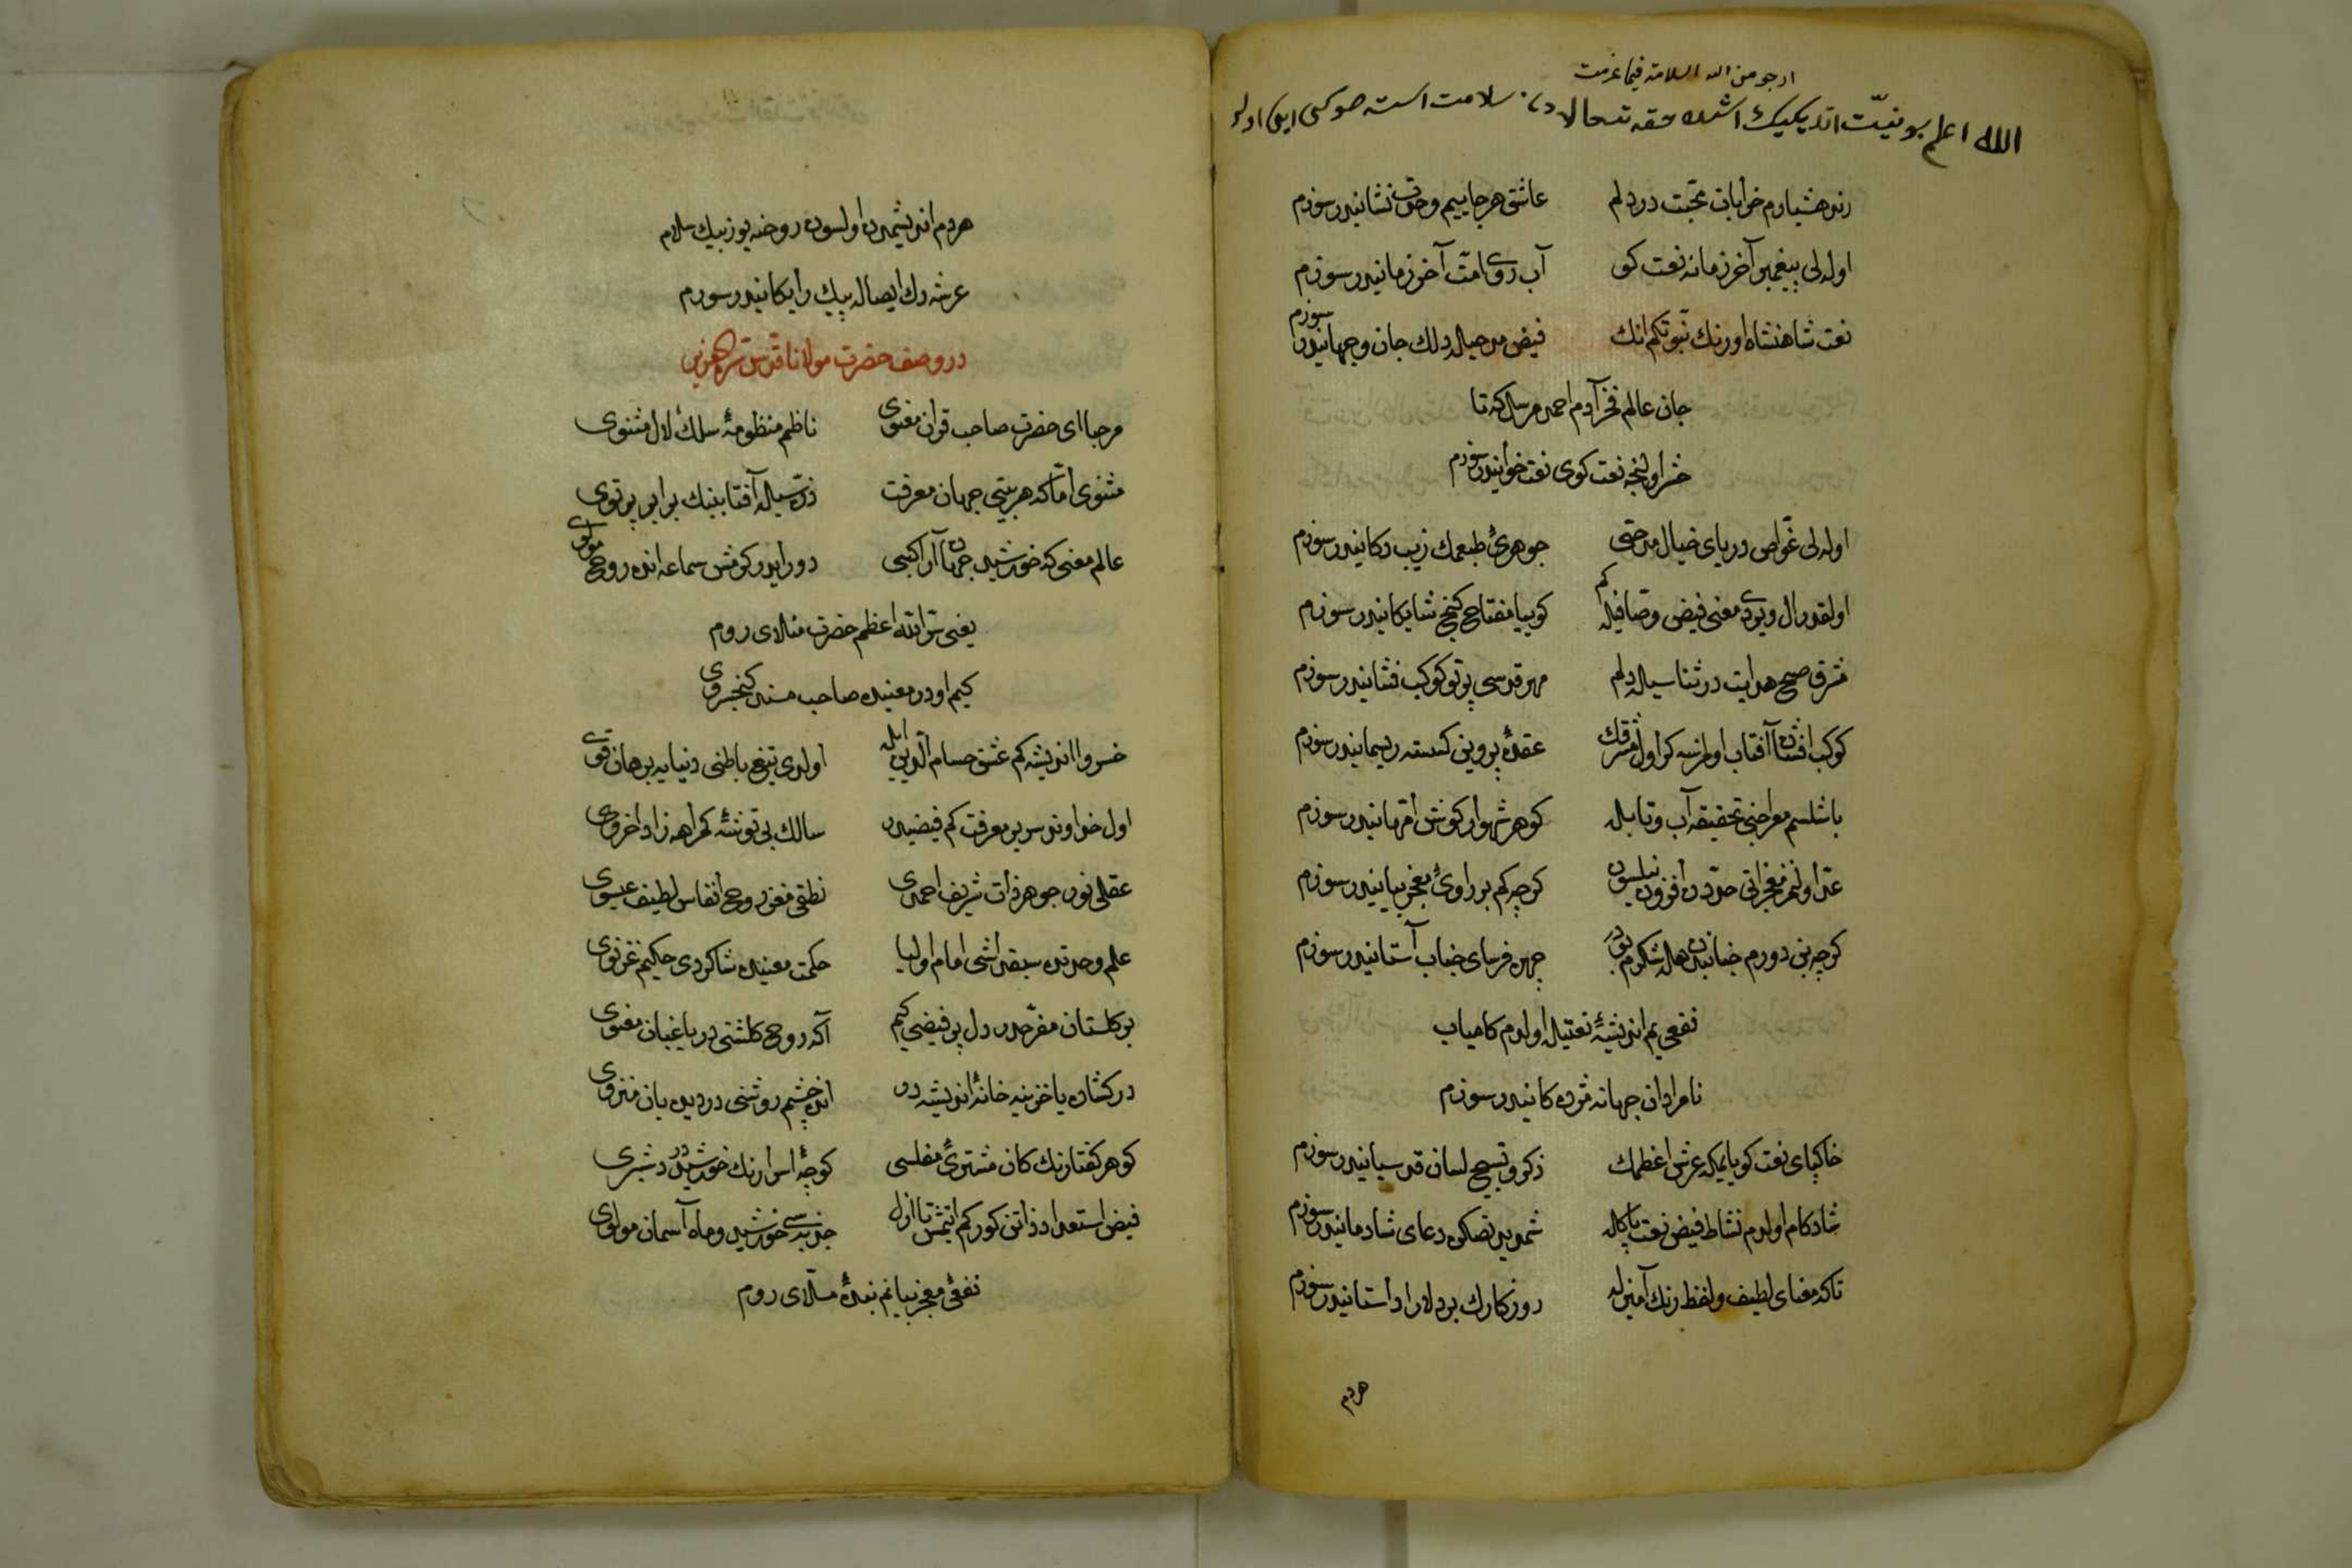 ارجو من الله السلامه فیما عزمت
الله اعلم بو نیّت اتدیکیك اشده حقه تعالادن سلامت استه صوکی ایو اولر
رند هشیارم خرابات محبّت در دلم عاشق هر جاییم وحدت نشانیدر سوزم
اولدلی پیغمبر آخر زمانه نعت کو آب روی امّت آخر زمانیدر سوزم
نعت شاهنشاه اورنك نبوّتکم انك فیض مدحیله دلك جان و جهانیدر سوزم
جان عالم فخر آدم احمد مرسل که تا
حشر اولنجه نعت کوی نعت خوانیدر سوزم
اولدلی غوّاص دریای خیال مدحتی جوهرئ طبعمك زیب دکانیدر سوزم
اولقدر ال ویردی معنی فیض وصّافیله کم کوییا مفتاح کنج شایکانیدر سوزم
مشرق صبح هدایت در ثناسیله دلم مهر قدسی پرتو کوکب فشانیدر سوزم
کوکب افشان آفتاب اولمزسه کر اول مشرقك عقدۀ پروین کسسته ریسمانیدر سوزم
باشلسم معراجنی تحقیقه آب و تابله کوهر شهوار کوش امّهانیدر سوزم
عدّ اولنمز معجزاتی حدّدن افزون نیلسون کرچه کم بر راوئ معجز بیانیدر سوزم
کرچه بن دورم جنابندن هله شکرم بودر چهره فرسای جناب آستانیدر سوزم
نفعی یم اندیشۀ نعتیله اولدم کامیاب
نامرادان جهانه مژده کانیدر سوزم
خاکپای نعت کویایم که عرش اعظمك ذکر و تسبیح لسان قدسیانیدر سوزم
شادکام اولدم نشاط فیض نعت پاکله شمدی بدنصکره دعای شادمانیدر سوزم
تا که معنای لطیف و لفظ رنك آمیزله روزکارك بر دلارا داستانیدر سوزم
هردم
هردم اندیشمدن اولسون روحنه یوز بیك سلام
عرشه دك ایصاله پیك رایکانیدر سوزم
در وصف حضرت مولانا قدّس سرّه العزیز
مرحبا ای حضرت صاحب قران معنوی ناظم منظومۀ سلك لآل مثنوی
مثنوی امّا که هر بیتی جهان معرفت ذرّه سیله آفتابینك برابر پرتوی
عالم معنی که خورشید جهان آراکبی دور ایدر کوش سماعه انده روح مولوی
یعنی سرّ الله اعظم حضرت منلای روم
کیم اودر معنیده صاحب مسند کیخسروی
خسرو اندیشه کم عشق حسام الدین ایله اولدی تیغ باطنی دنیایه برهان قوی
اول خداوند سریر معرفت کم فیضیدر سالك بی توشۀ کمراهه زاد اخروی
عقلی نور جوهر ذات شریف احمدی نطقی مغز روح انفاس لطیف عیسوی
علم وحدتده سبقداشی امام اولیا حکمت معنیده شاکردی حکیم غزنوی
بر کلستان مفرّحدر دل پر فیضی کیم آکه روح کلشنی در باغبان معنوی
در کشاده یا خزینه خانۀ اندیشه در انده چشم روشنی در دیده بان منزوی
کوهر کفتارنك کان مشتری مفلسی کوچۀ اسرارنك خورشیددر شبروی
فیض استعداد ذاتن کور کم ایتمش تا ازل جذبه سی خورشید و ماه آسمان مولوی
نفعئ معجز بیانم بندۀ منلّای روم